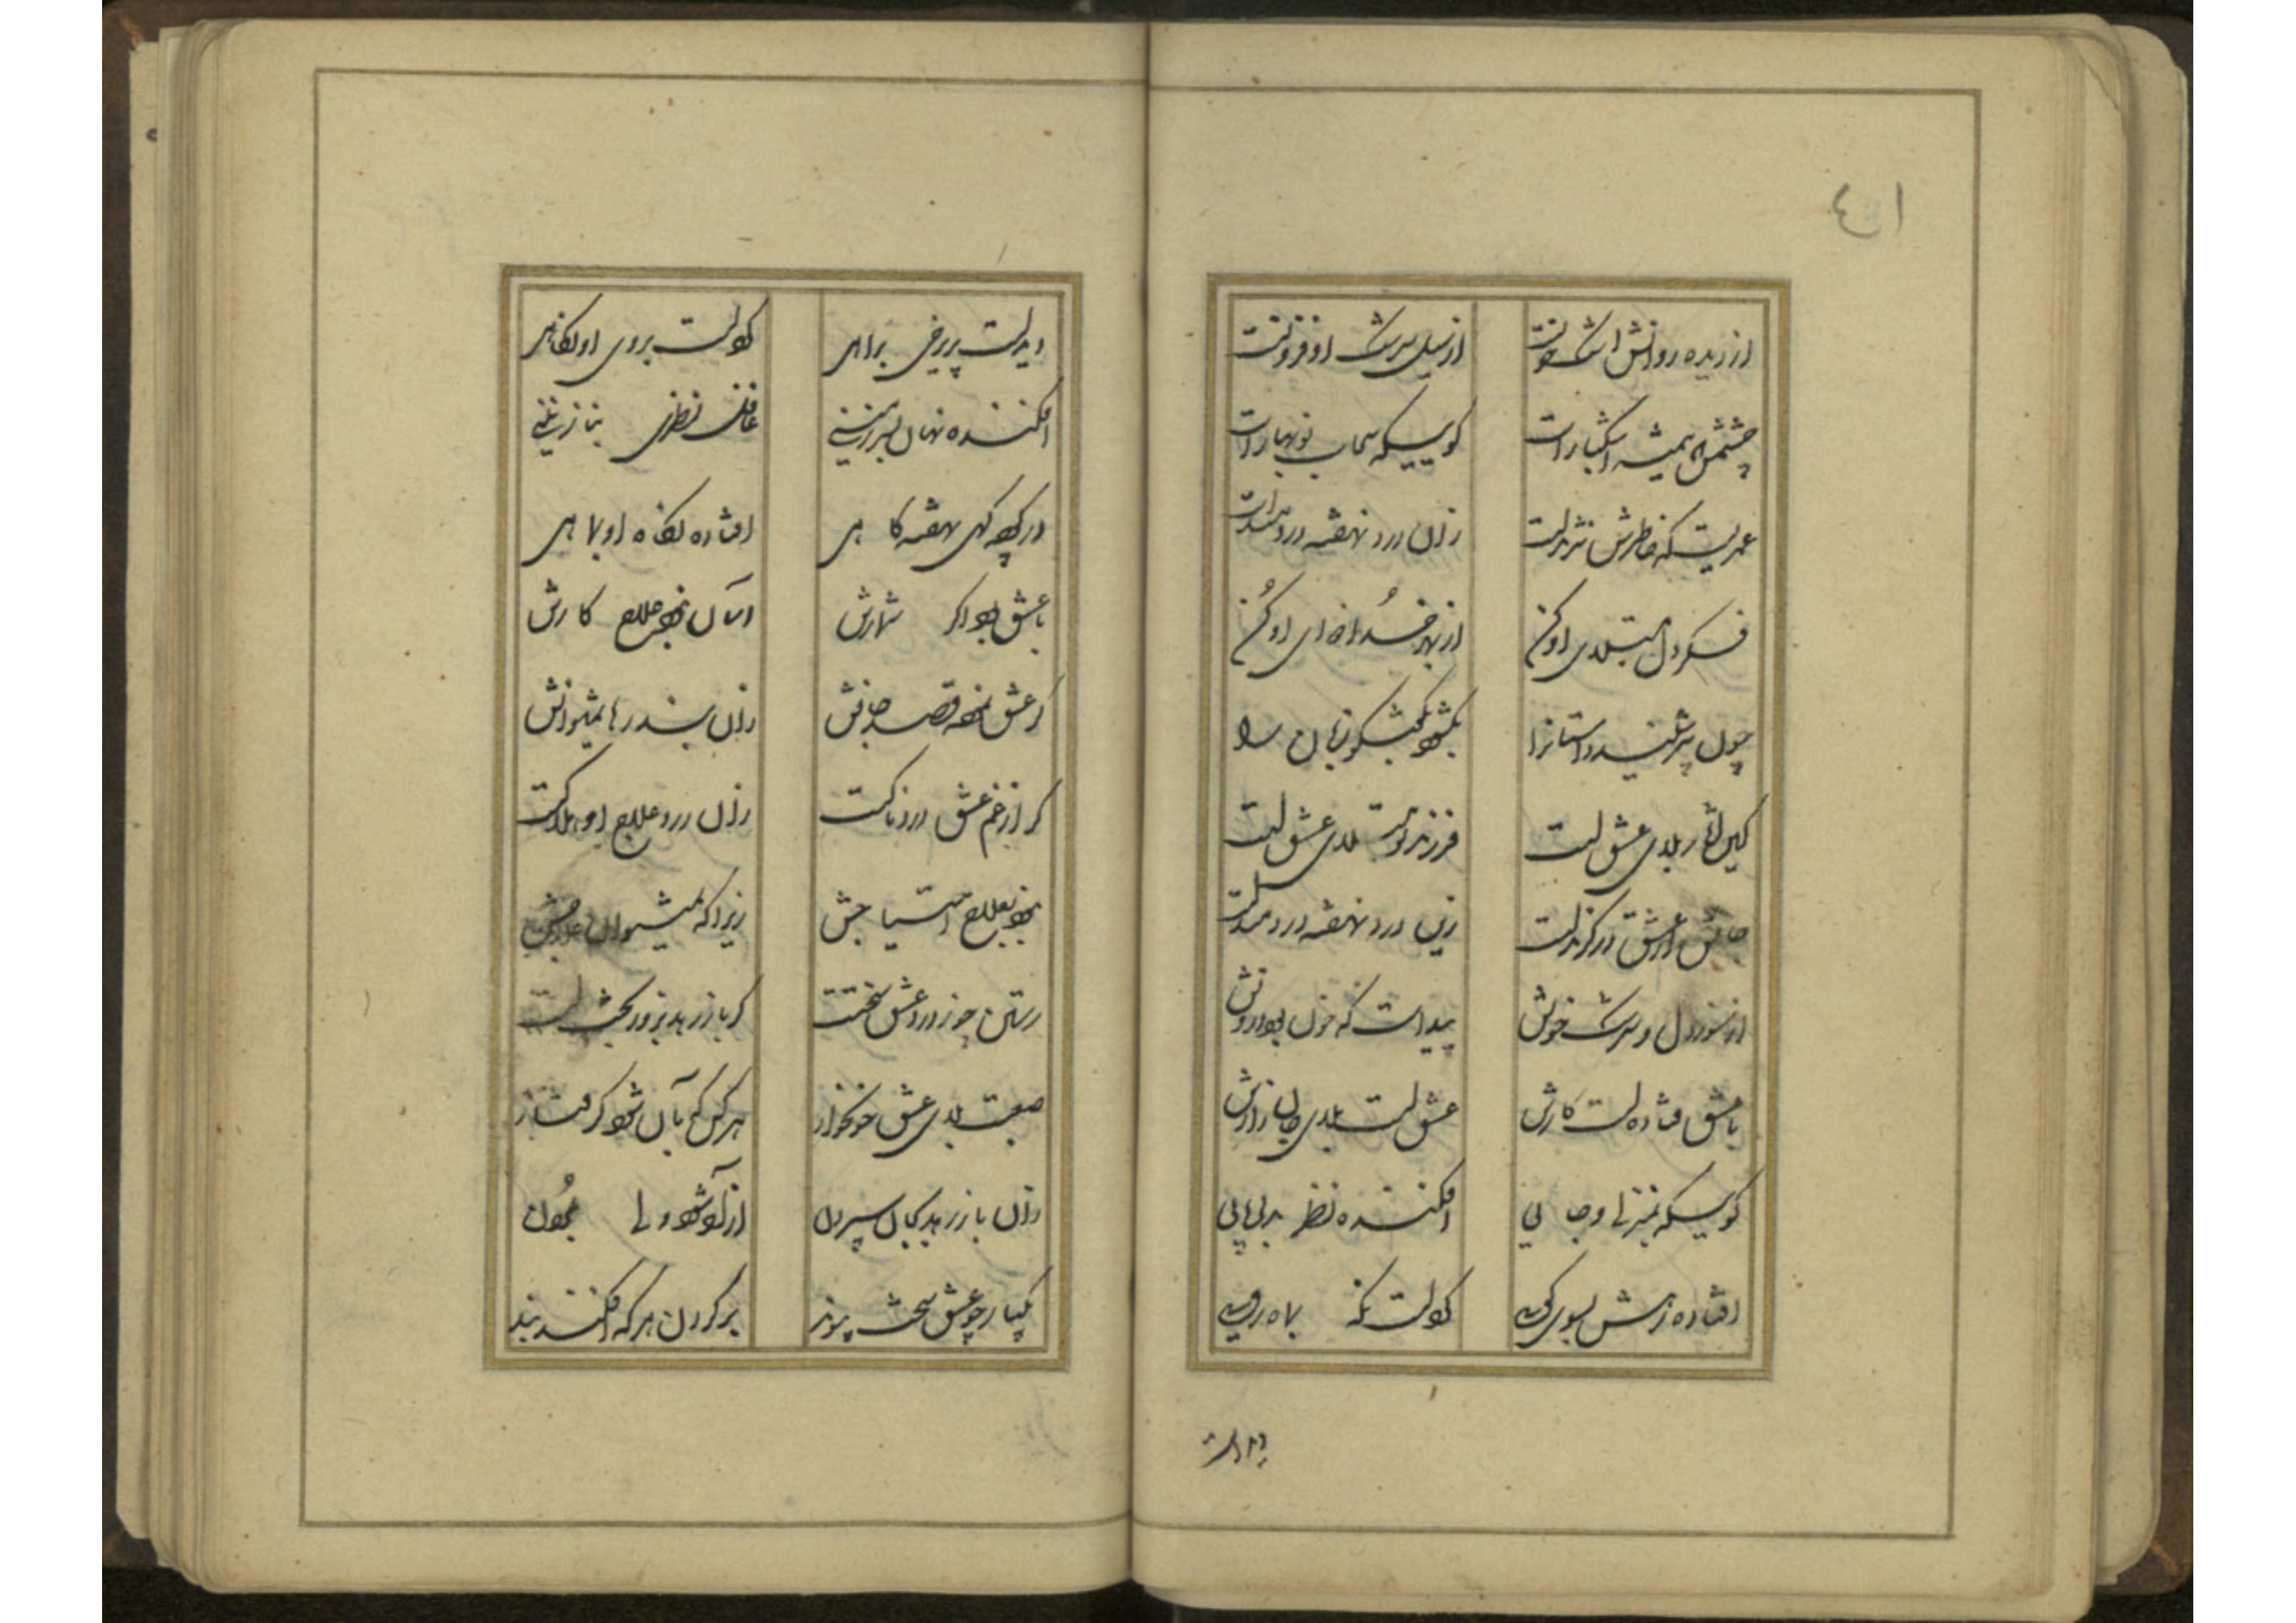 ٤١
از دیده روانش اشک خونست از سیل سرشک او فزونست
چشمش همیشه اشکبارست گوییکه سحاب نوبهارست
عمریست که خاطرش نژندست زان درد نهفته دردمندست
فکر دل مبتلای او کن از بهر خدا دوای او کن
چون پیر شنید داستانرا بگشود بگفتگو زبان را
کین کار بلای عشق است فرزند تو مبتلای عشق است
جانش از عشق در گزندست زین درد نهفته دردمندست
از سوز دل و سرشک خونش پیداست که خون بود درونش
با عشق فتاده است کارش عشق است بلای جان زارش
گوییکه بمنزلی و جایی افکنده نظر بدلربایی
افتاده رهش بسوی کویی کردست نگه بماه رویی
دیدست پریرخی براهی کردست بروی او نگاهی
افکنده نهان بسرزمینی غافل نظری بنازنینی
در کوچه گهی نهفته گاهی افتاده نگاه او بماهی
با عشق بود اگر شمارش آسان نبود علاج کارش
گر عشق نموده قصد جانش زان بند رها نمیتوانش
گر از غم عشق دردناکست زان درد علاج او هلاکست
نبود بعلاج احتیاجش زیرا که نمیتوان علاجش
رستن چو ز درد عشق سختست گر باز رهد بزور بختست
صعبست بلای عشق خونخوار هر کس که بآن شود گرفتار
زان باز رهد بجان سپردن
یکبار چو عشق سخت پیوند بر گردن هر که افکند بند
دیدست